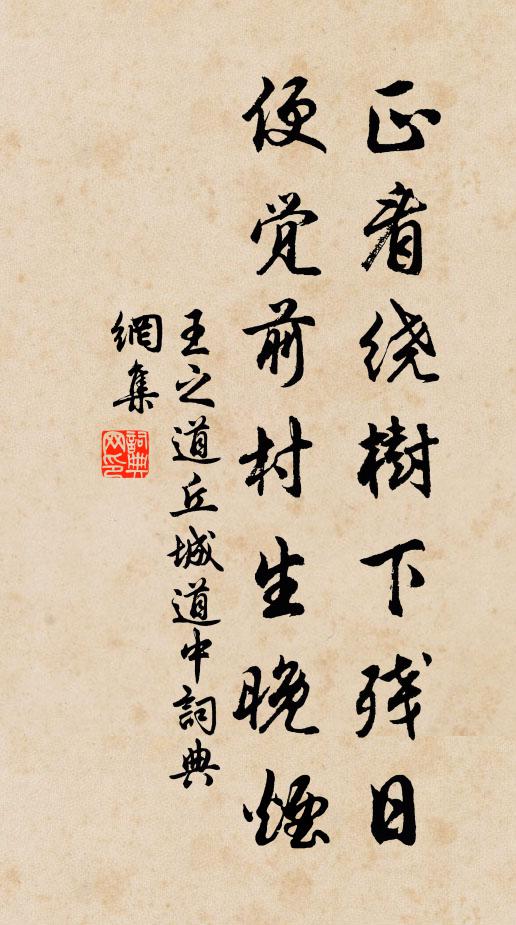 正看绕樹下残日
便觉前村生晚烟
王之道丘城道中詞典
網集
詞典网印